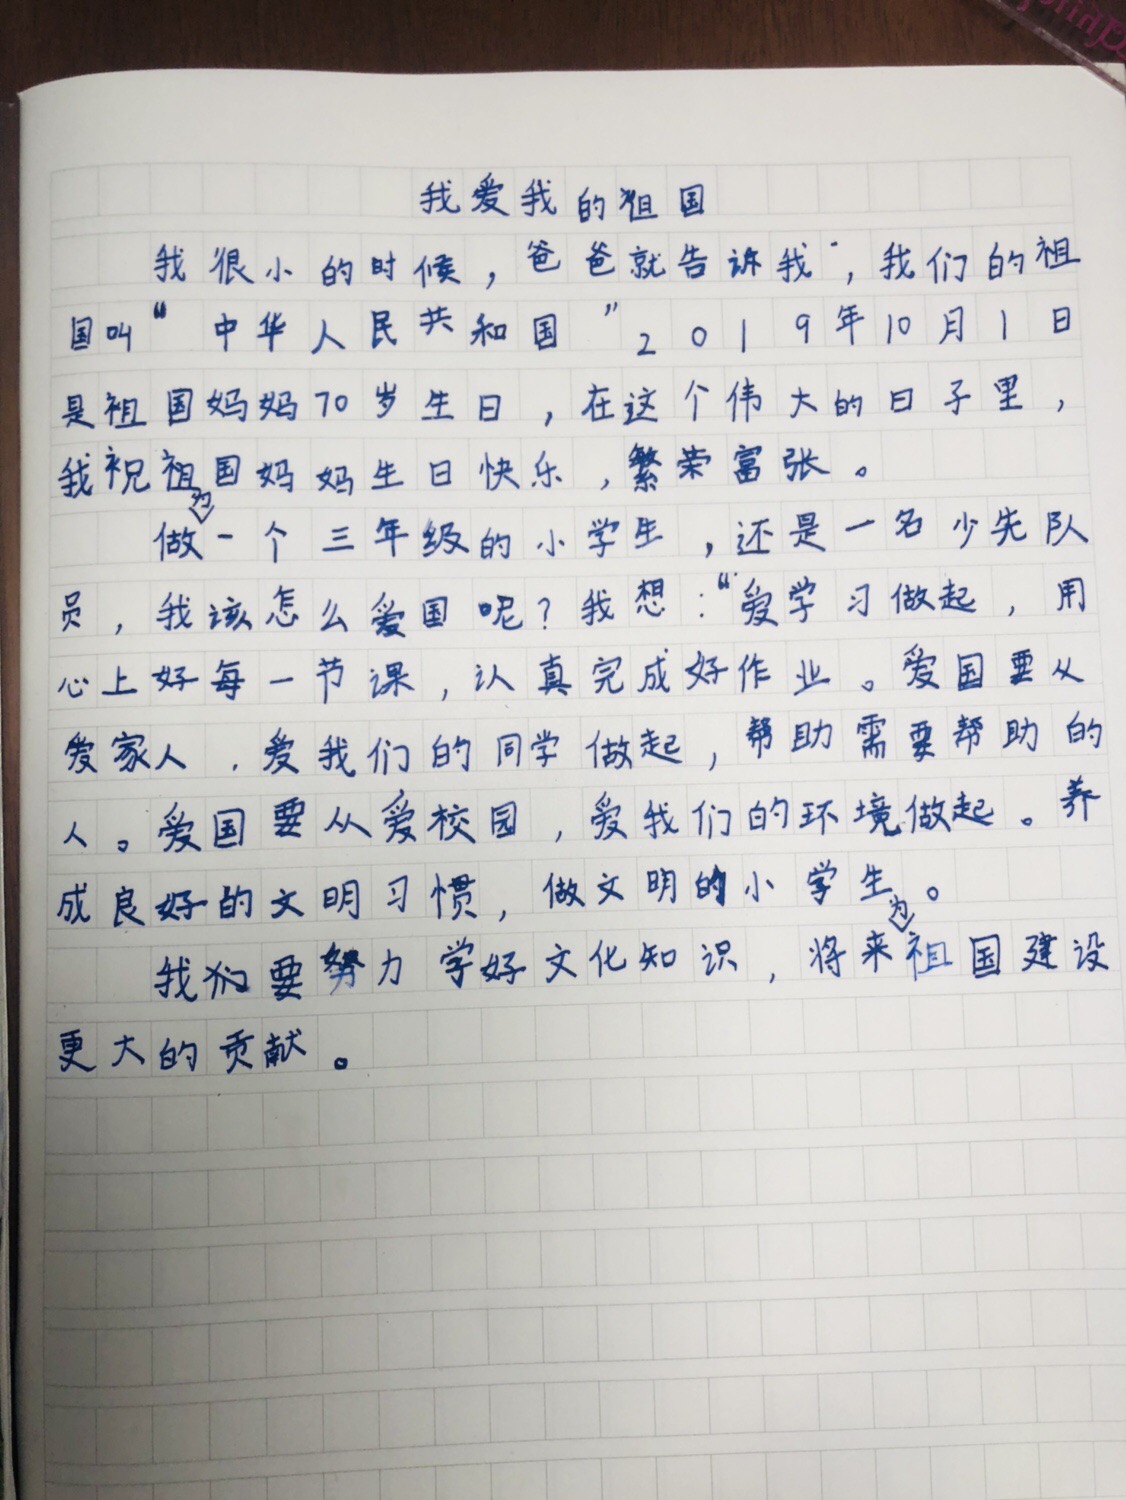 我爱我的祖国
我很小的时候，爸爸就告诉我，我们的祖
国叫“中华人民共和国”2019年10月1日
是祖国妈妈70岁生日，在这个伟大的日子里，
我祝祖国妈妈生日快乐，繁荣富张。
做为一个三年级的小学生，还是一名少先队
员，我该怎么爱国呢？我想：“爱学习做起，用
心上好每一节课，认真完成好作业。爱国要从
爱家人，爱我们的同学做起，帮助需要帮助的
人。爱国要从爱校园，爱我们的环境做起。养
成良好的文明习惯，做文明的小学生。
我们要努力学好文化知识，将来为祖国建设
更大的贡献。